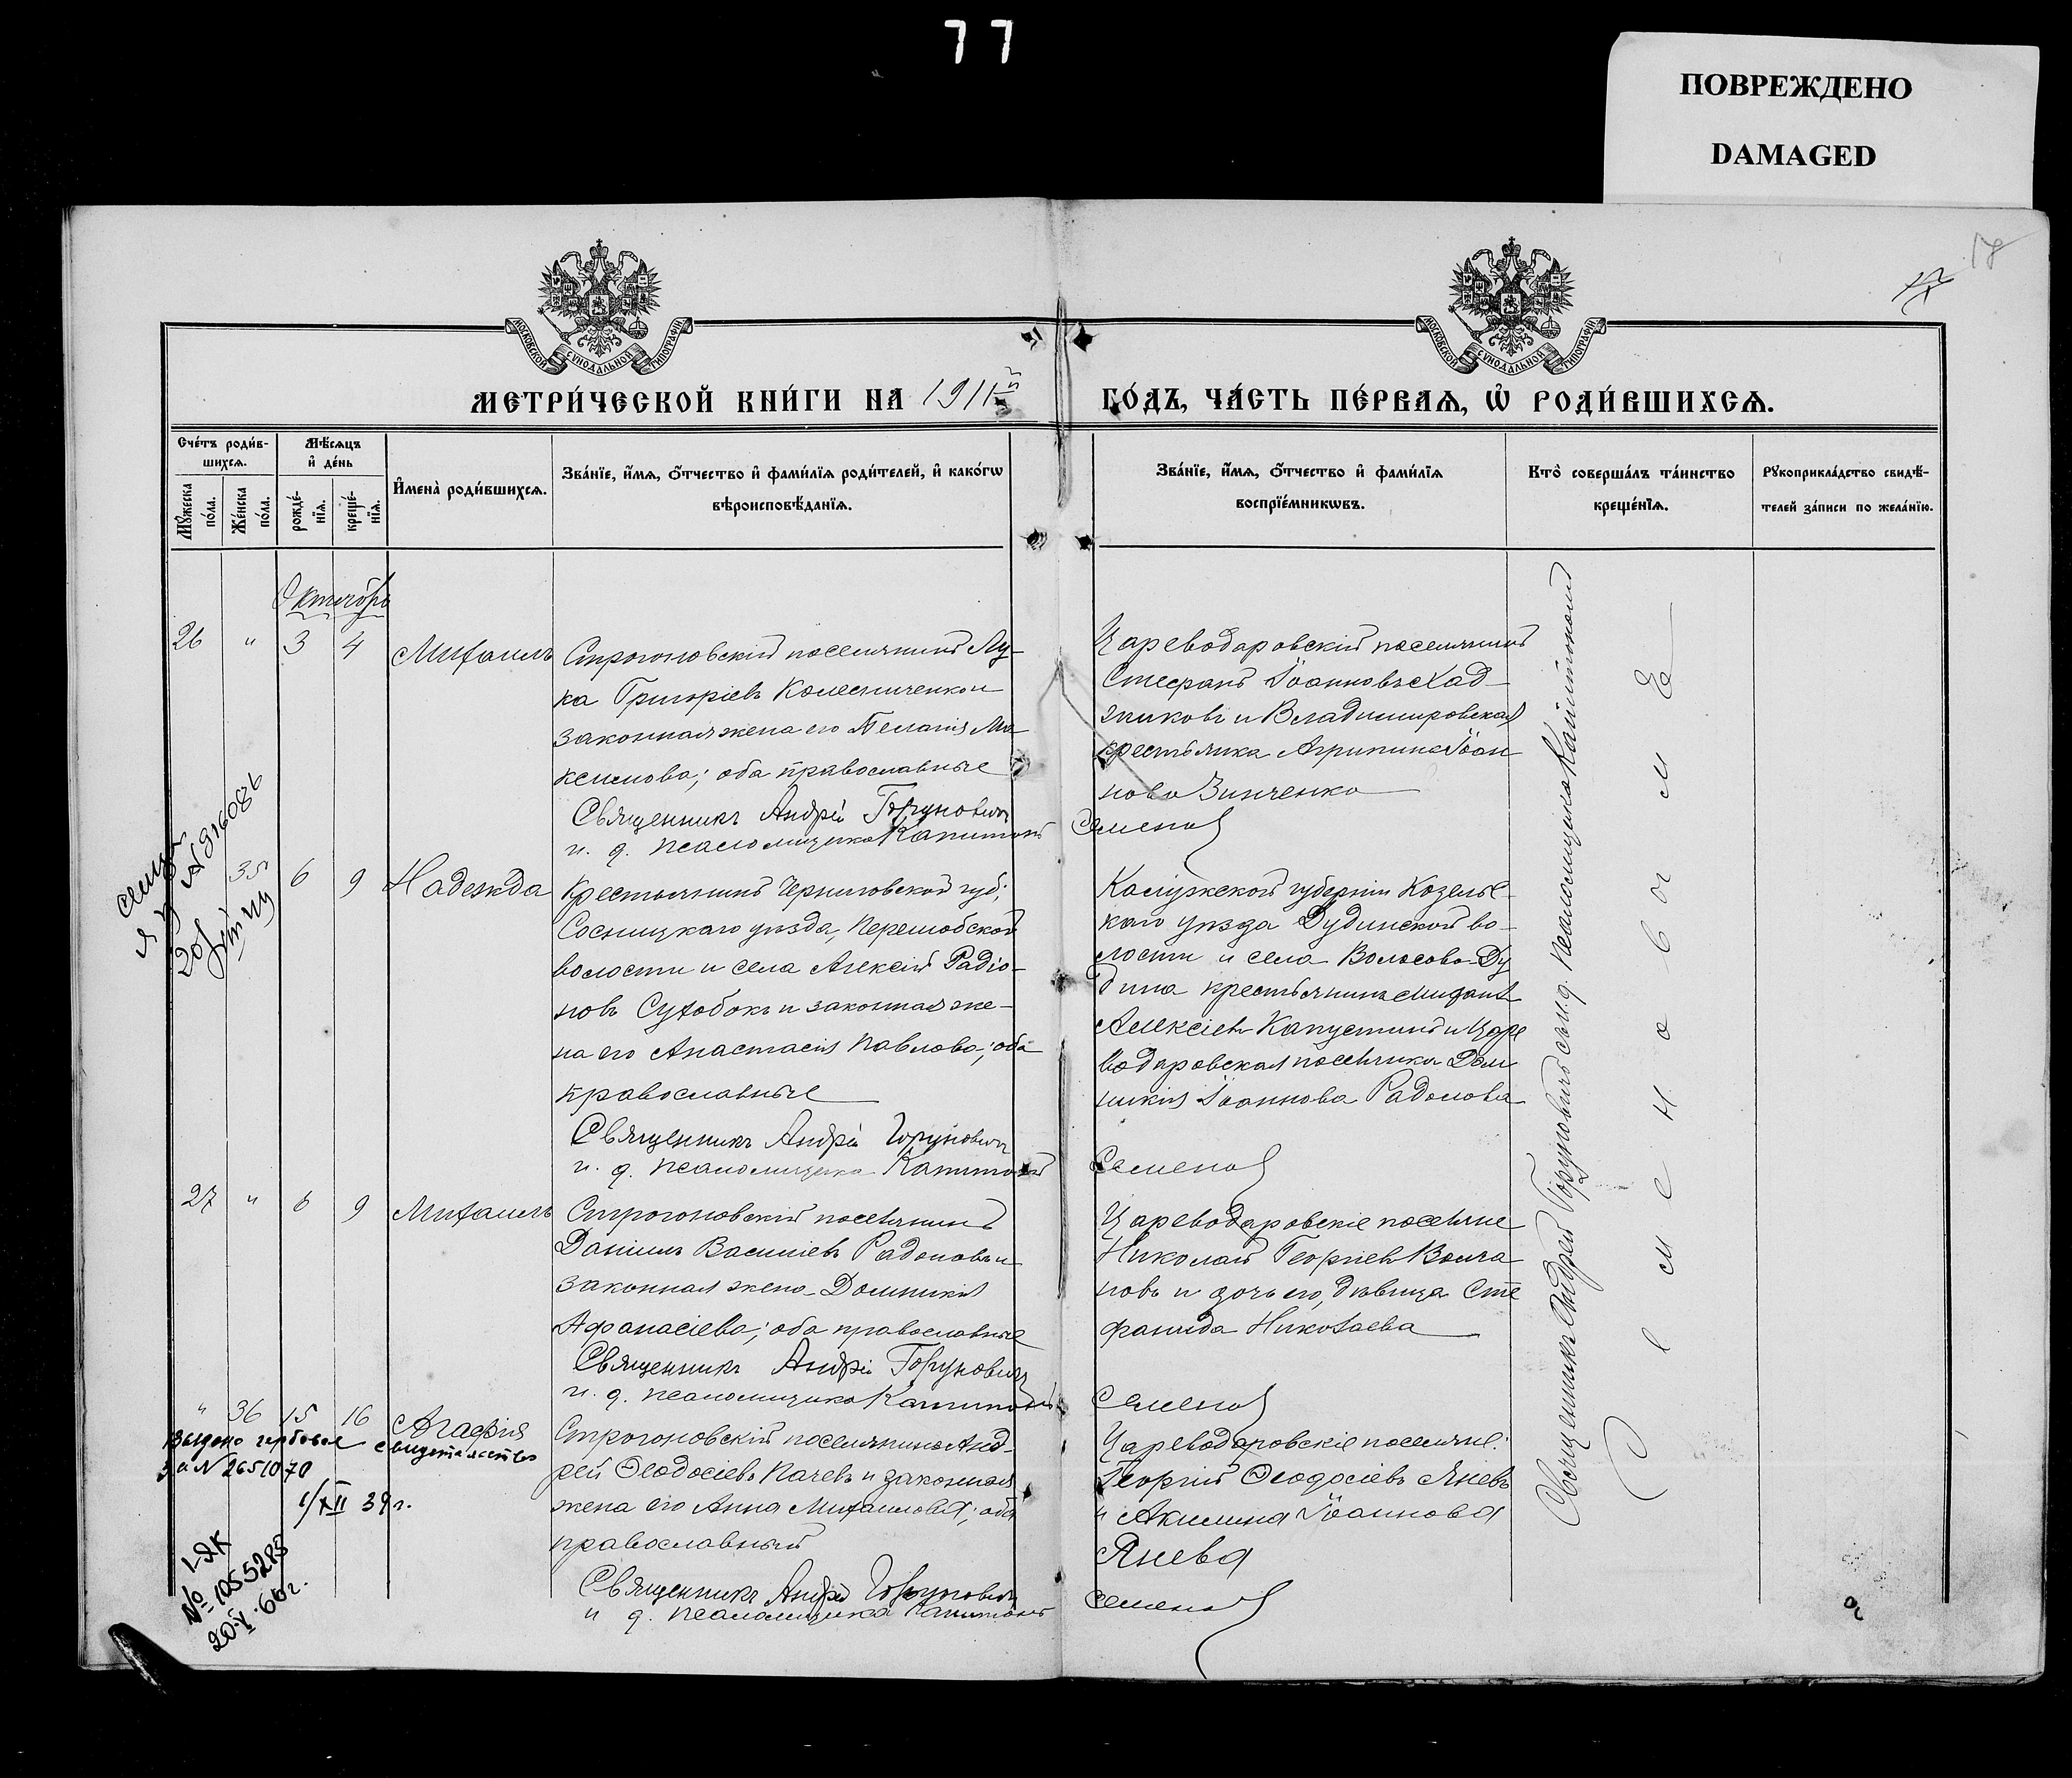 77
ПОВРЕЖДЕНО
DAMAGED
18
17
МОСКОВСКОЙ СѴНОДАЛЬНОЙ ТИПОГРАФІИ
МОСКОВСКОЙ СѴНОДАЛЬНОЙ ТИПОГРАФІИ
МЕТРИ́ЧЕСКОЙ КНИ́ГИ НА 1911й ГО́ДЪ, ЧА́СТЬ ПЕ́РВАѦ, Ѡ҆ РОДИ́ВШИХСѦ.
Сче́тъ роди́в-
шихсѧ.
Мѣ́сѧцъ
и҆ де́нь
Мꙋ́жеска
по́ла.
Же́нска
по́ла.
рожде́-
нїѧ.
креще́-
нїѧ.
И҆мена̀ роди́вшихсѧ.
Зва́нїе, и҆́мѧ, ѻ҆́тчество и҆ фами́лїѧ роди́телей, и҆ како́гѡ
вѣроисповѣ́данїѧ.
Зва́нїе, и҆́мѧ, ѻ҆́тчество и҆ фами́лїѧ
воспрїе́мникѡвъ.
Кто̀ соверша́лъ та́инство
креще́нїѧ.
Рꙋкоприкла́дство свидѣ́-
телей за́писи по жела́нїю.
Октябрь
26 " 3 4 Михаилъ
Строгоновскій поселянинъ Лу-
ка Григоріевъ Колесниченко и
законная жена его Пелагія Ма-
ксимова; оба православные
Священникъ Андрей Горуновичъ
и. д. псаломщика Капитонъ Семенов
Цареводаровскій поселянинъ
Стефанъ Іоанновъ Хад-
жиковъ и Владимировская
крестьянка Агрипина Іоан
нова Зинченко
35 6 9 Надежда
Крестьянинъ Черниговской губ;
Сосницкаго уѣзда, Перелюбской
волости и села Алексій Радіо-
новъ Сухобокъ и законная же-
на его Анастасія Павлова; оба
православные
Священникъ Андрей Горуновичъ
и. д. псаломщика Капитонъ Семенов
Калужской губерніи Козельс-
каго уѣзда Дудинской во-
лости и села Волосово-Ду
дина крестьянинъ Михаилъ
Алексіевъ Капустинъ и Царе
водаровская поселянка Дом
никія Іоаннова Радолова
27 " 6 9 Михаилъ
Строгоновскій поселянинъ
Даніилъ Василіевъ Радоловъ и
законная жена Домникія
Афанасіева; оба православные
Священникъ Андрей Горуновичъ
и. д. псаломщика Капитонъ Семенов
Цареводаровскіе поселяне
Николай Георгіевъ Волча
новъ и дочь его, дѣвица Сте
фанида Николаева
" 36 15 16 Агафія
Строгоновскій поселянинъ Анд-
рей Ѳеодосіевъ Пачевъ и законная
жена его Анна Михаилова; оба
православный
Священникъ Андрей Горуновичъ
и д. псаломщика Капитонъ Семенов
Цареводаровскіе поселяне:
Георгій Ѳеодосіевъ Яневъ
и Акилина Іоаннова
Янева
Священникъ Андрей Горуновичъ и. д. псаломщика Капитонъ
Семенов
№ 916086
Выдано гербовое свидетельство
за № 2651070
1/XII 39 г.
I-ЯК
№ 1055285
20-V-66г.